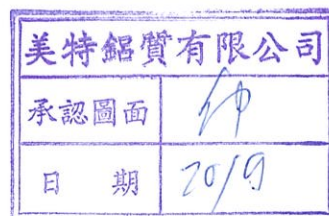 美特鋁質有限公司
承認圖面 仲
日期 20/9